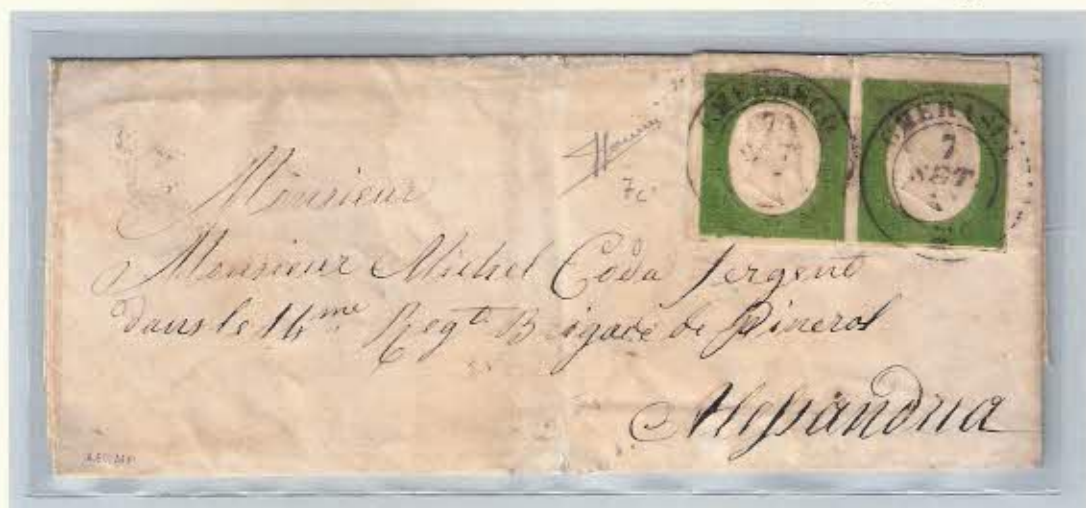 CHERASCO
7
SET
CHERASCO
7
SET
7c
Monsieur
Monsieur Michel Coda Sergent
dans le 14me Regt Brigade de Pinerol
Alessandria